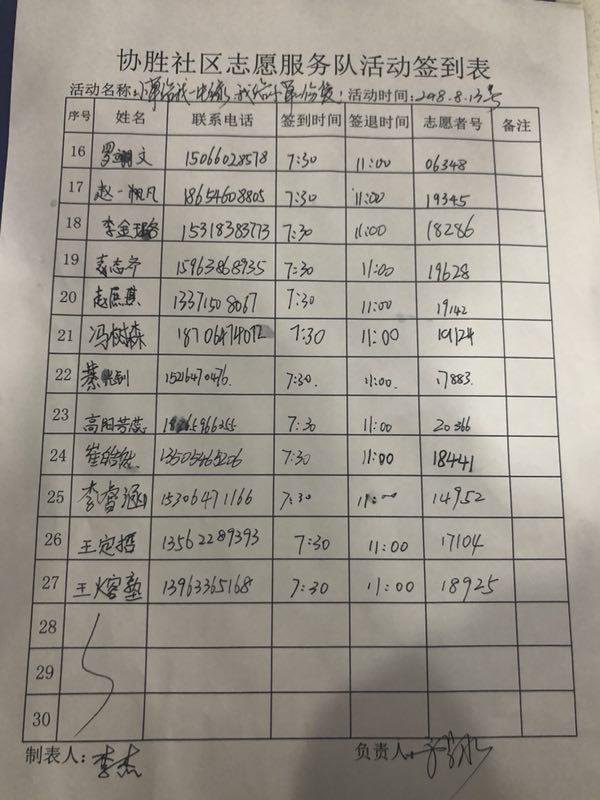 协胜社区志愿服务队活动签到表
活动名称: 活动时间:2018.8.13号
序号 姓名 联系电话 签到时间 签退时间 志愿者号 备注
16 罗翊文 15066028578 7:30 11:00 06348
17 赵一帆 18654608805 7:30 11:00 19345
18 李金璐 15318383773 7:30 11:00 18286
19 袁志齐 15963868935 7:30 11:00 19628
20 赵庶琪 13371508067 7:30 11:00 19142
21 冯树森 18706474072 7:30 11:00 19124
22 15216470476. 7:30. 11:00. 17883.
23 高阳芳蕊 7:30 11:00 20366
24 崔皓然 13505465206 7:30 11:00 18441
25 李睿涵 15306471166 7:30 11:00 14952
26 王定哲 13562289393 7:30 11:00 17104
27 王熔塾 13963365168 7:30 11:00 18925
28
29
30
制表人:李杰 负责人: